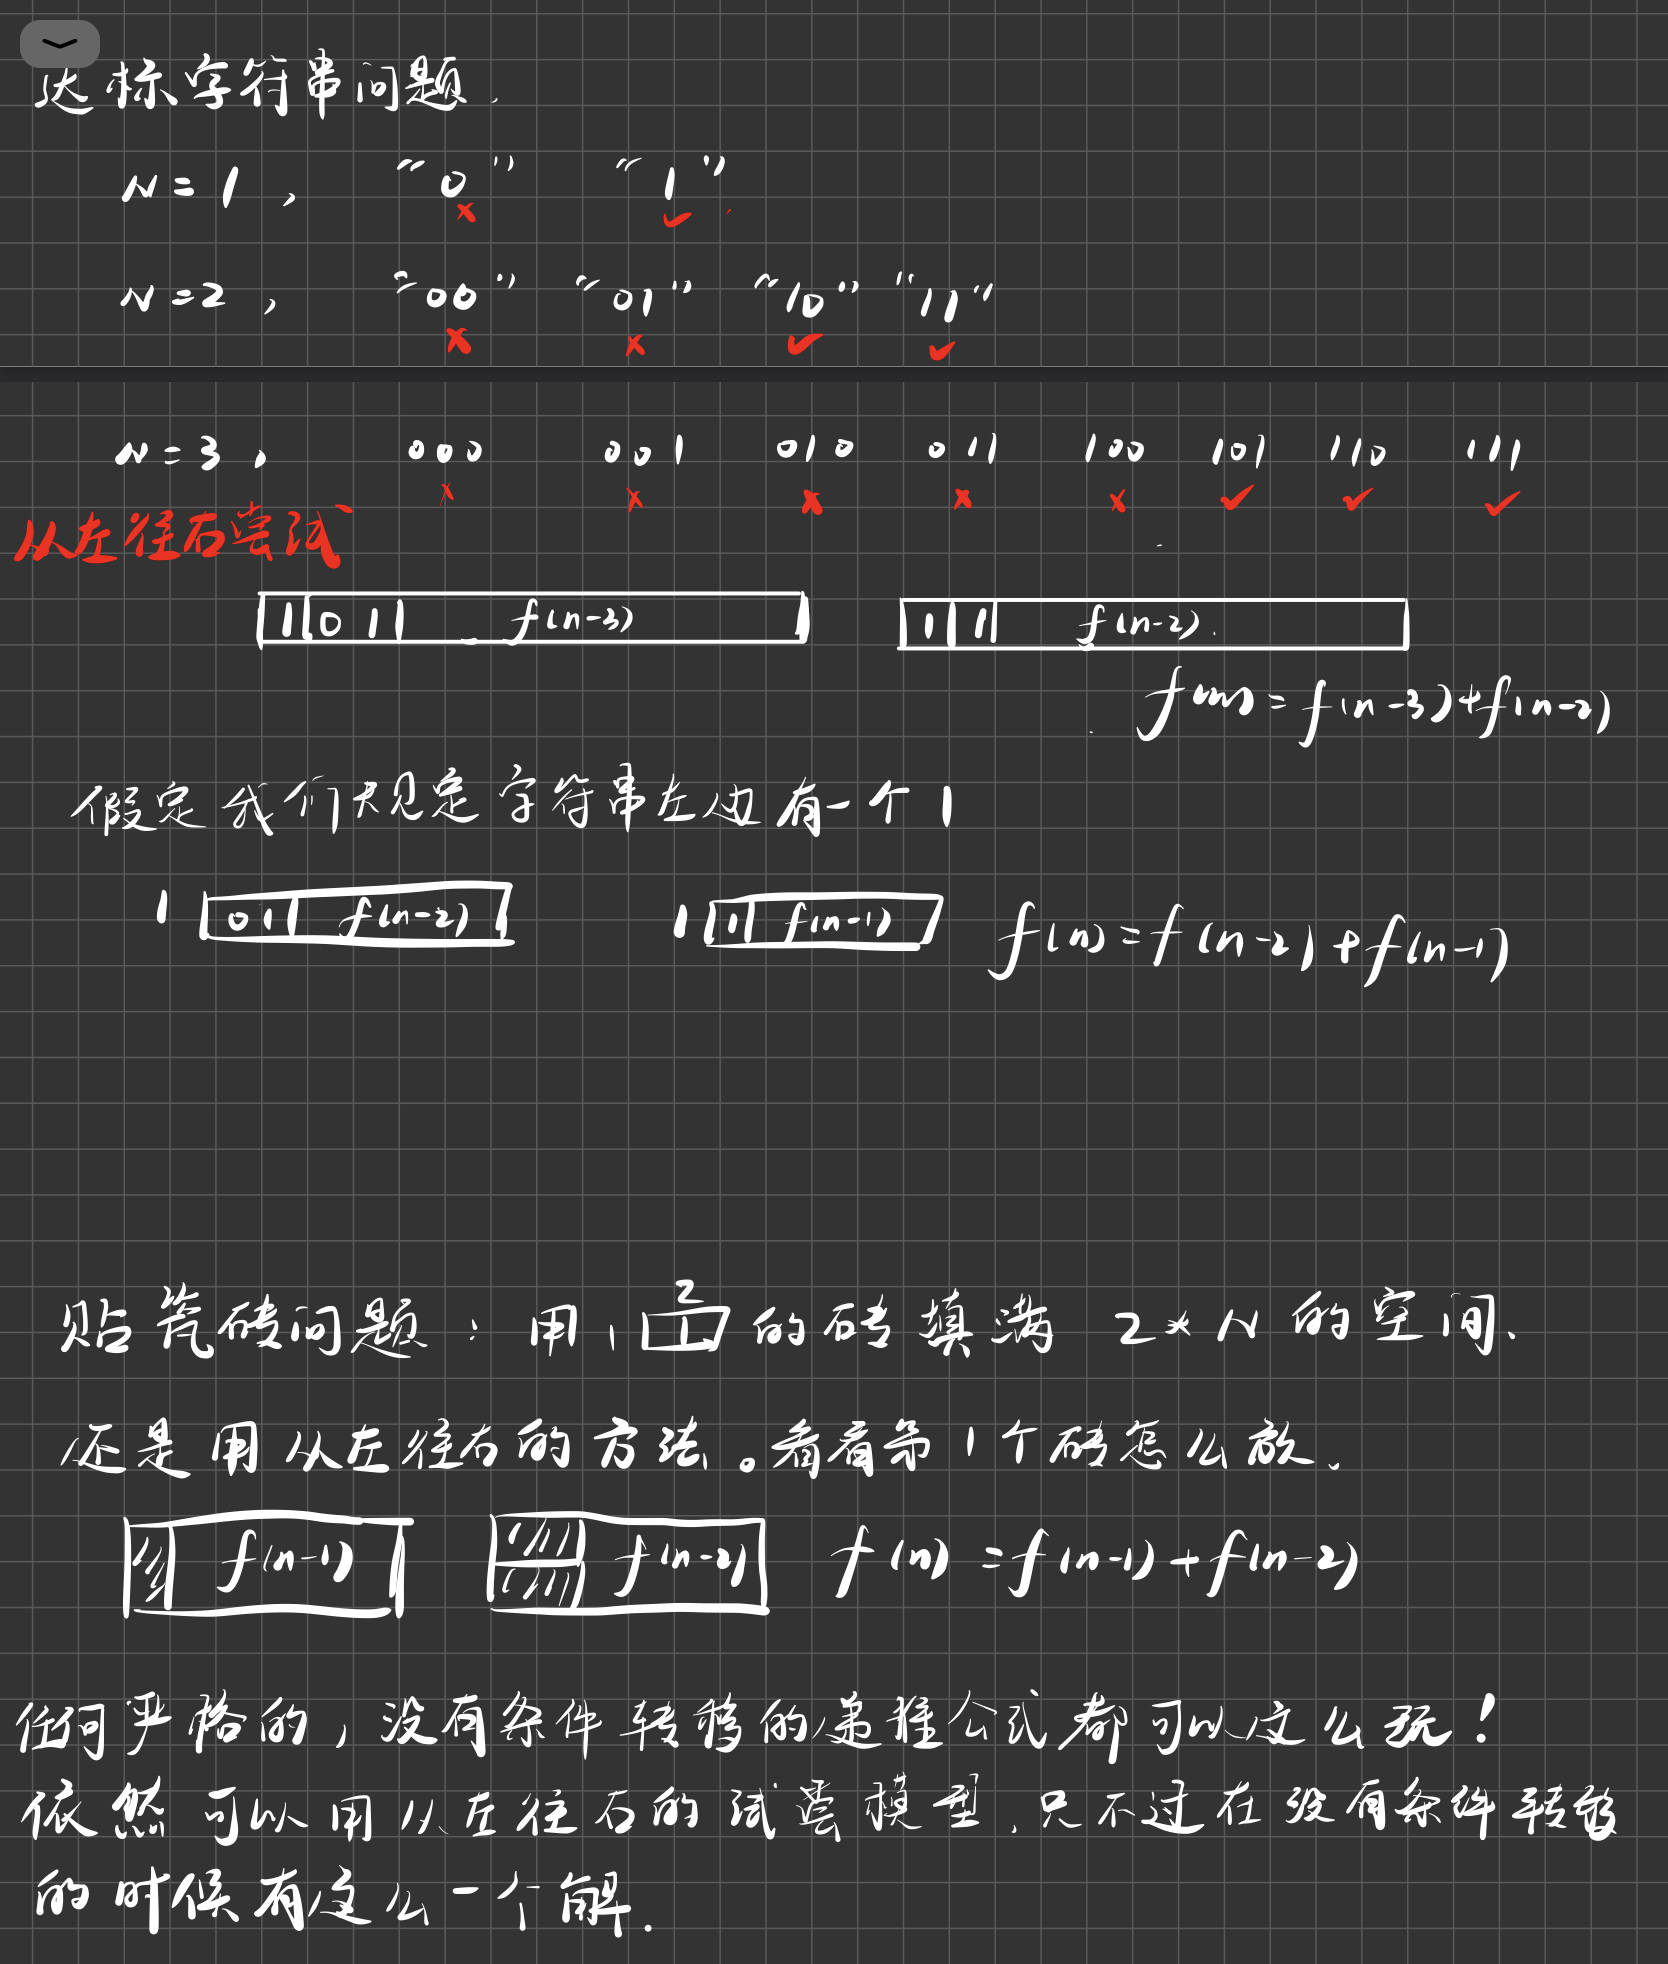 达标字符串问题.
N=1, "0" "1"
× ✓
N=2, "00" "01" "10" "11"
× × ✓ ✓
N=3, 000 001 010 011 100 101 110 111
× × × × × ✓ ✓ ✓
从左往右尝试
1 0 1 f(n-3) 1 1 f(n-2).
f(n)=f(n-3)+f(n-2)
假定我们规定字符串左边有一个1
1 01 f(n-2) 1 1 f(n-1) f(n)=f(n-2)+f(n-1)
贴瓷砖问题:用 1 2 1 的砖填满 2*N的空间.
还是用从左往右的方法。看看第1个砖怎么放.
f(n-1) f(n-2) f(n)=f(n-1)+f(n-2)
任何严格的,没有条件转移的递推公式都可以这么玩!
依然可以用从左往右的试尝模型,只不过在没有条件转移
的时候有这么一个解.